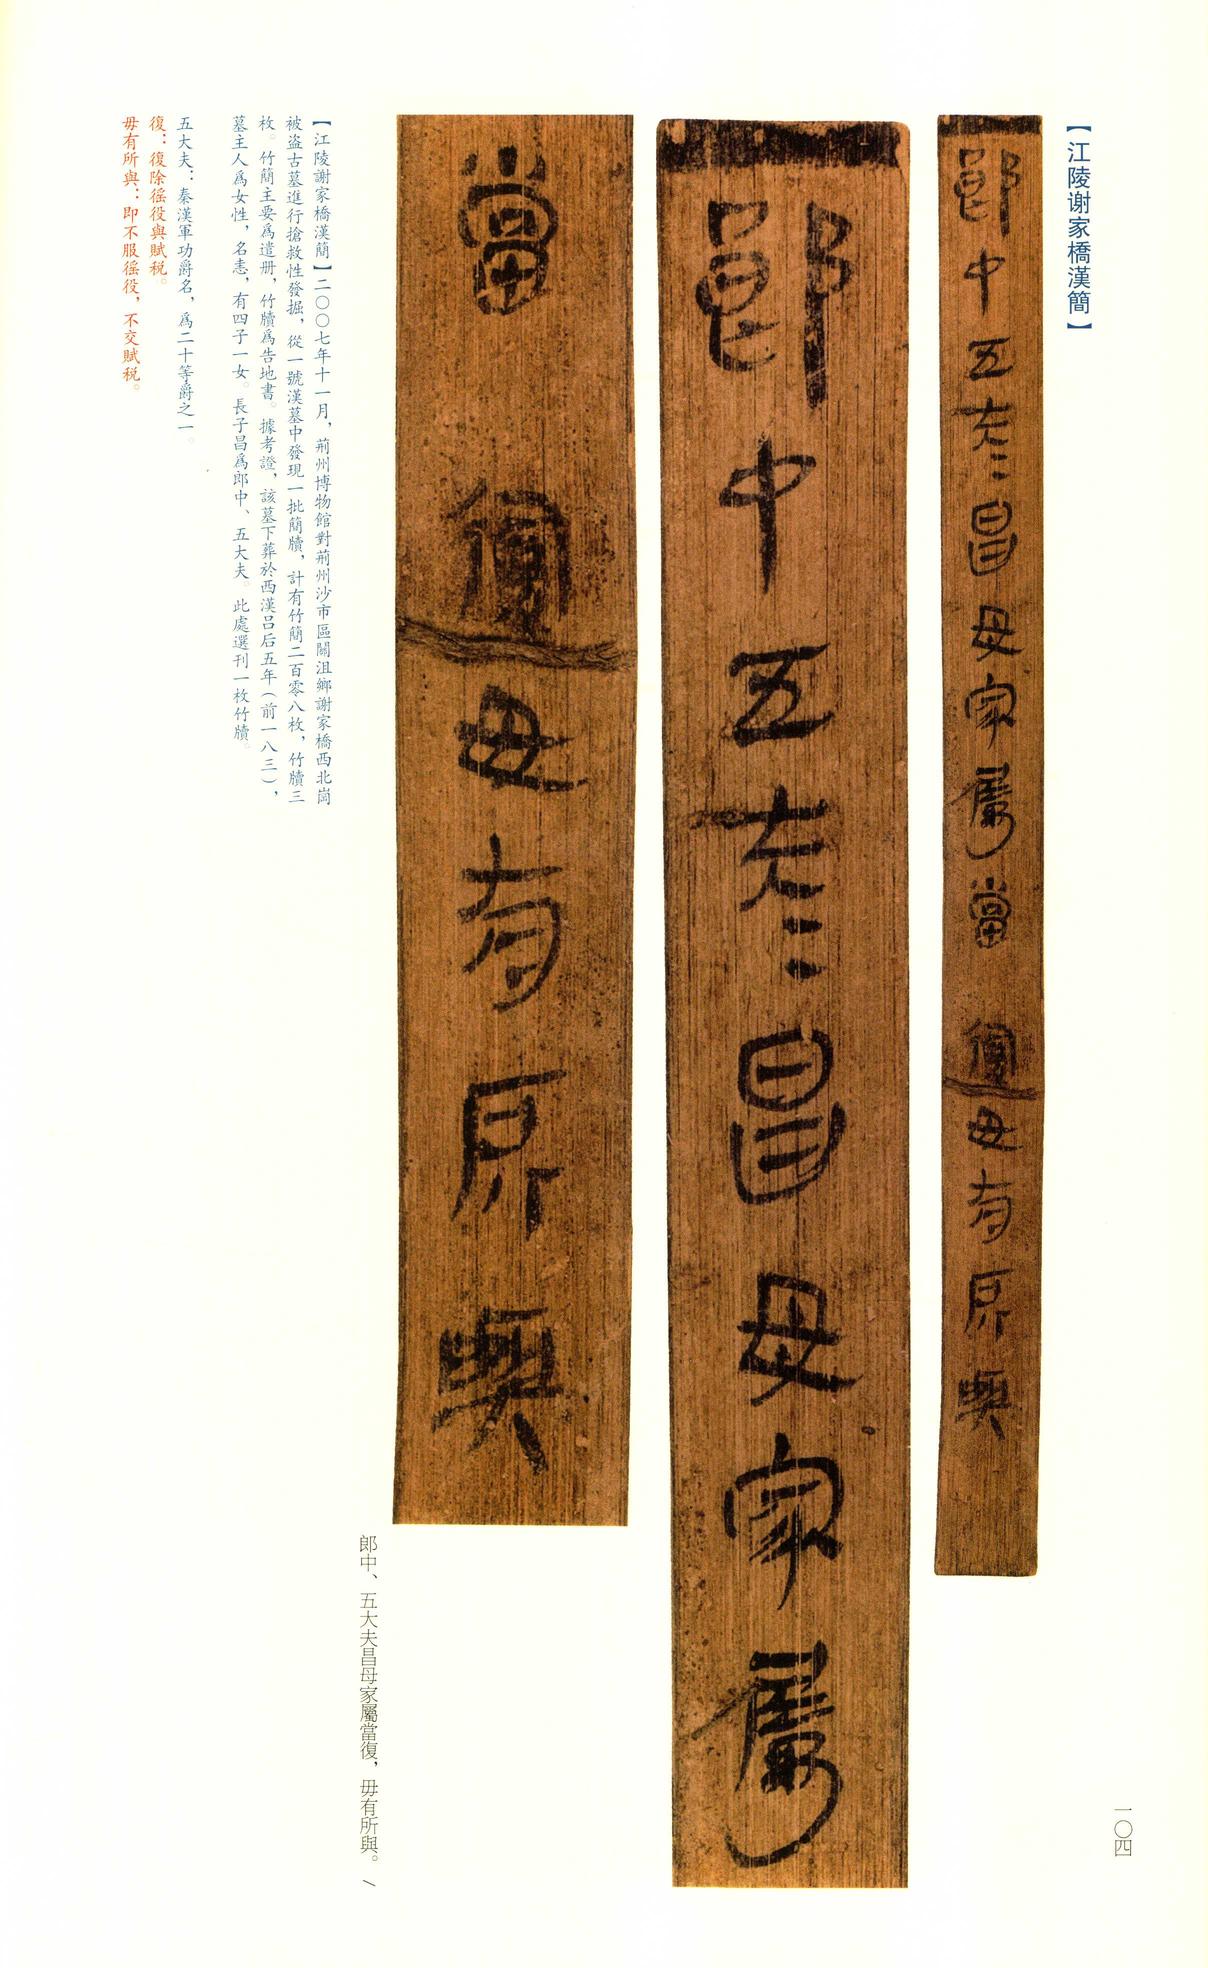 【江陵谢家橋漢簡】
郎中五夫=昌母家屬當復毋有所與
郎中五夫=昌母家屬
當復毋有所與
郎中、五大夫昌母家屬當復，毋有所與。/
【江陵謝家橋漢簡】二〇〇七年十一月，荊州博物館對荊州沙市區關沮鄉謝家橋西北崗
被盜古墓進行搶救性發掘，從一號漢墓中發現一批簡牘，計有竹簡二百零八枚，竹牘三
枚。竹簡主要爲遣册，竹牘爲告地書。據考證，該墓下葬於西漢吕后五年（前一八三），
墓主人爲女性，名恚，有四子一女。長子昌爲郎中、五大夫。此處選刊一枚竹牘。
五大夫：秦漢軍功爵名，爲二十等爵之一。
復：復除徭役與賦税。
毋有所與：即不服徭役，不交賦税。
一〇四